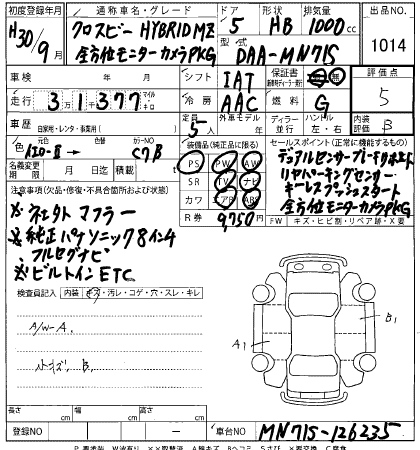 初度登録年月 通称車名・グレード ドア 形状 排気量 出品NO.
H30/9月 クロスビー HYBRID MZ 全方位モニターカメラPKG 5 HB 1000cc 1014
型式 DAA-MN71S
車検 年 月 シフト IAT 保証書 有 無 評価点 5
走行 3 1 千 3 7 7 マイル キロ 冷房 AAC 燃料 G
車歴 自家用・レンタ・事業用 定員 5人 外車モデル 年 ディーラー 並行 ハンドル 左・右 内装 B
色 → 色替 カラーNO C7B
名義変更期限 月 日 積載
装備品(純正品に限る)
PS PW AW
SR TV ナビ
カワ エアB ABS
R券 9,750円
セールスポイント(正常に機能するもの)
デュアルセンサーブレーキサポート
リヤパーキングセンサー
キーレスプッシュスタート
全方位モニターカメラPKG
FW キズ・ヒビ割・リペア跡・X要
注意事項(欠品・修復・不具合箇所および状態)
※ マフラー
※純正パナソニック8インチ
フルセグナビ
※ビルトインETC
検査員記入 内装 キズ・汚レ・コゲ・穴・スレ・キレ
A/W-A.
B.
A1
B1
長さ cm 幅 cm 高さ cm
登録NO ー 車台NO MN71S-126235